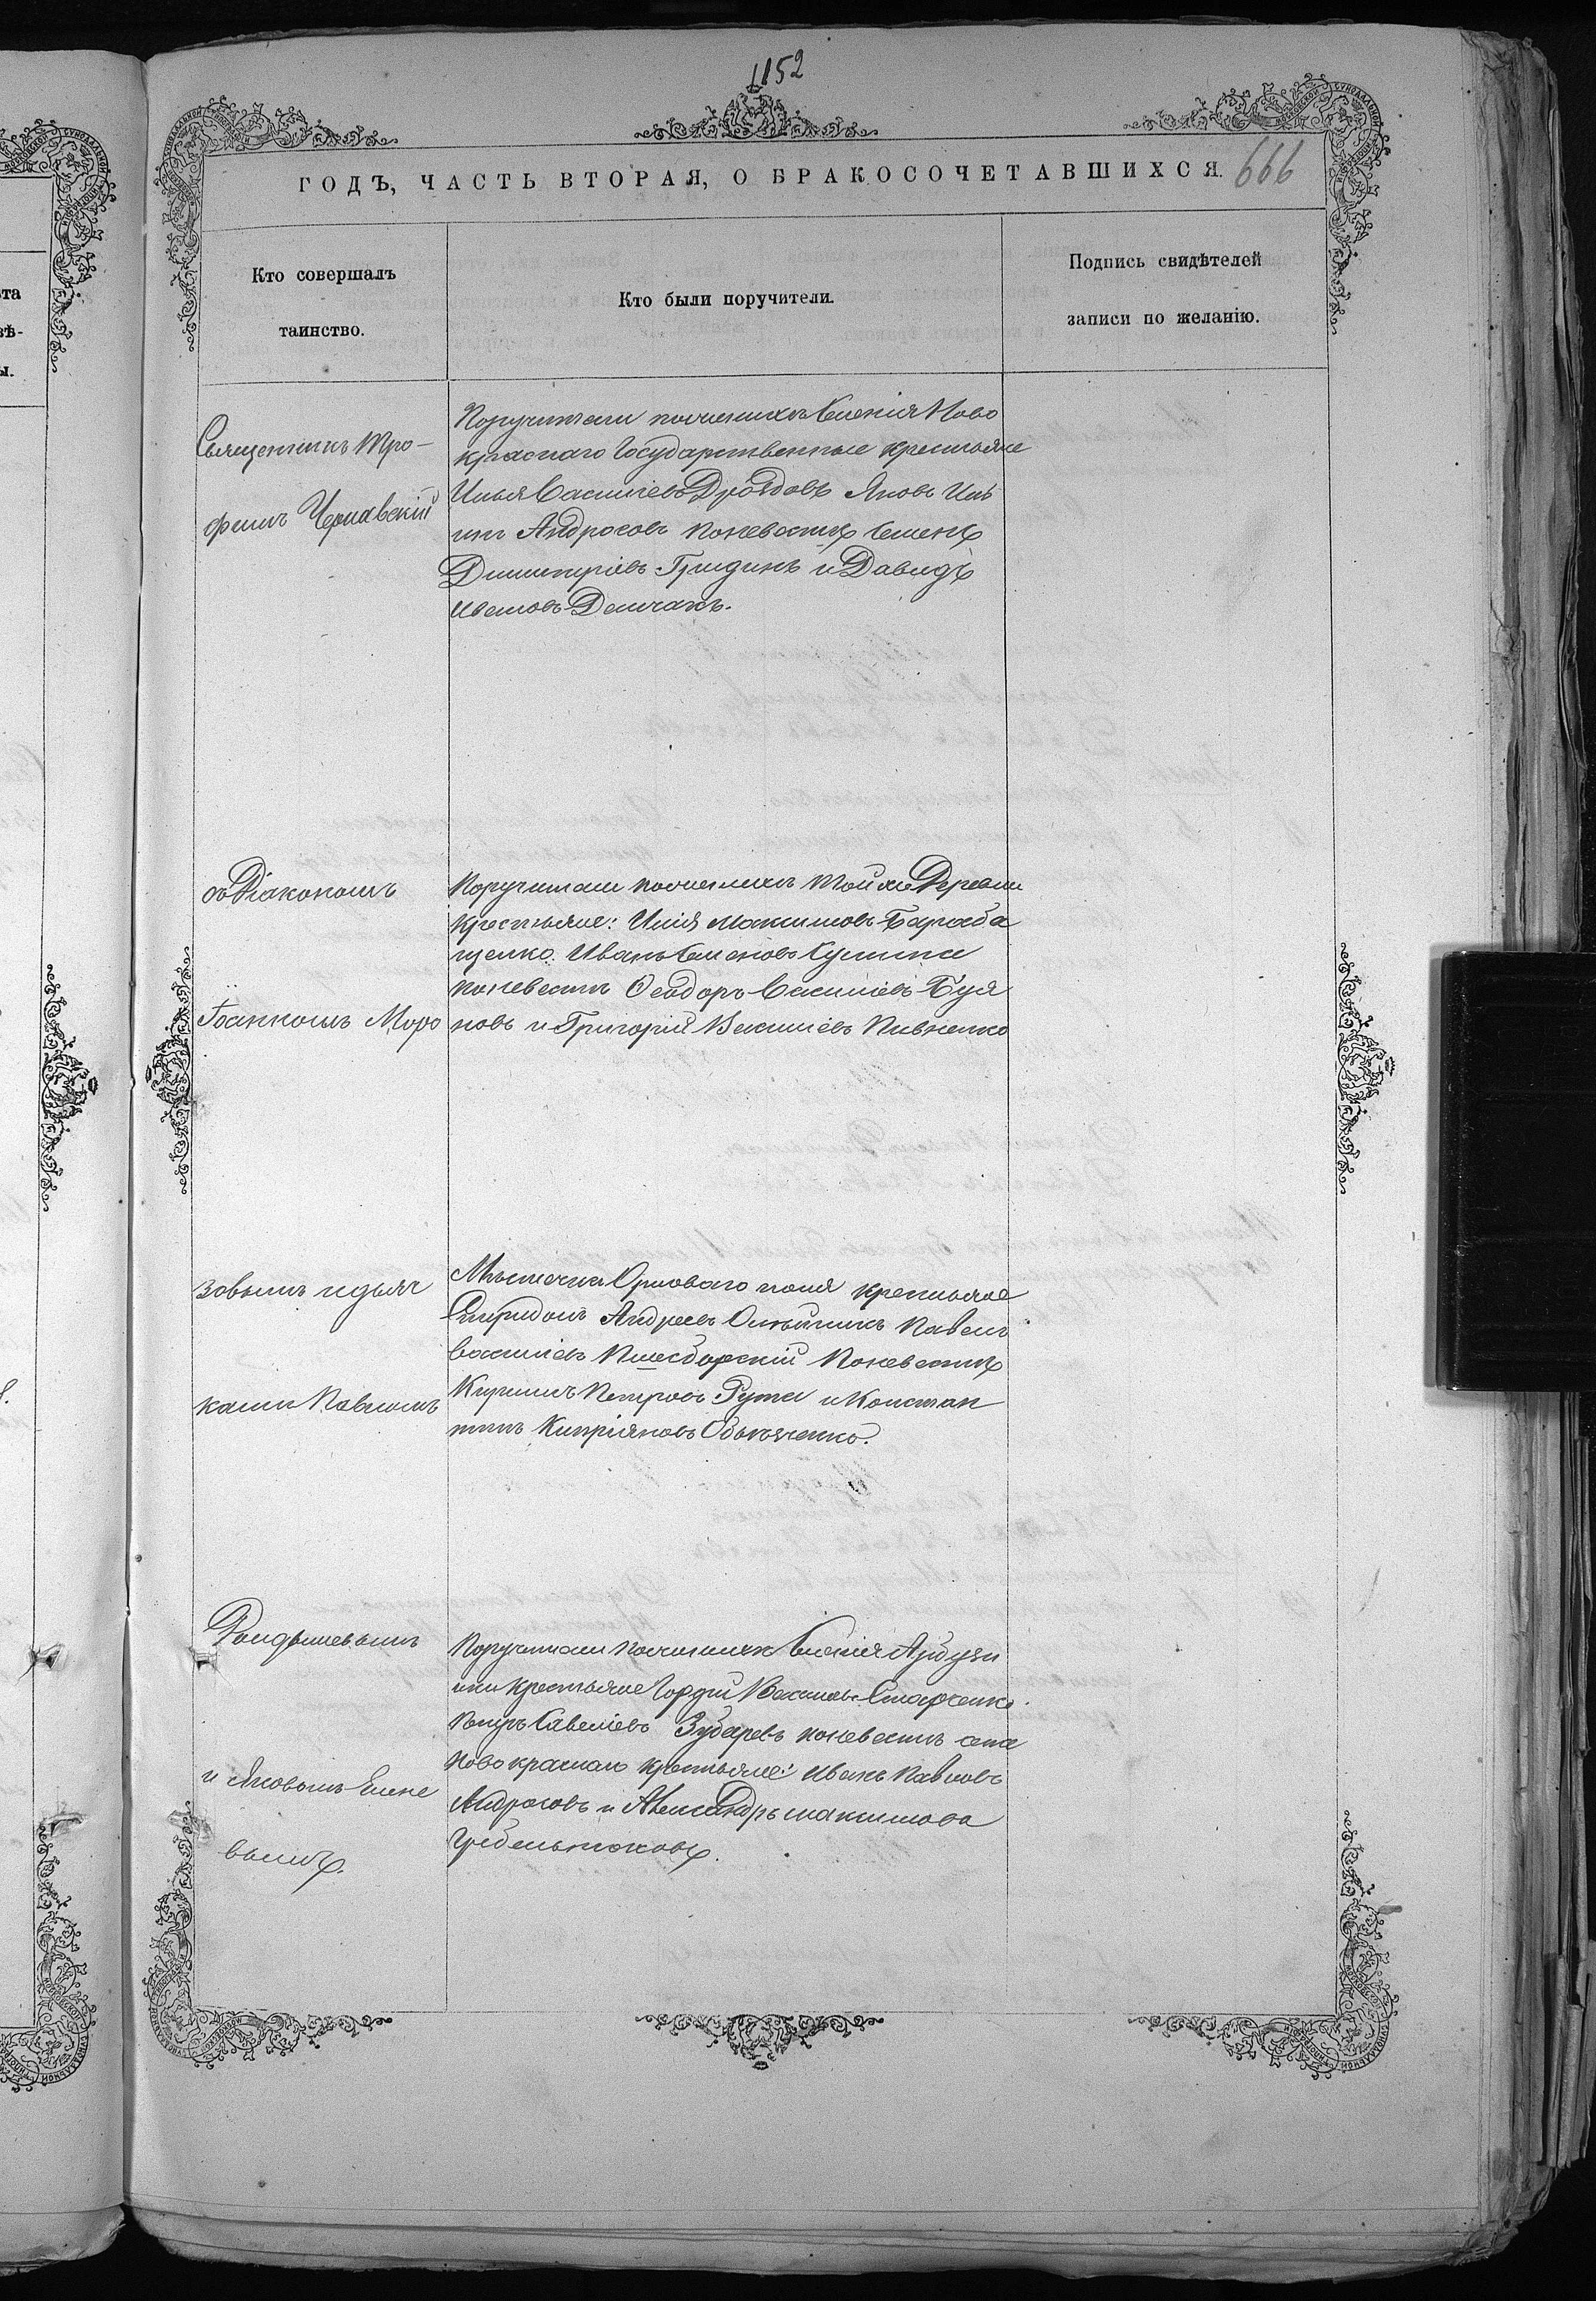 1152
ГОДЪ, ЧАСТЬ ВТОРАЯ, О БРАКОСОЧЕТАВШИХСЯ. 666
Кто совершалъ
таинство.
Кто были поручители.
Подпись свидѣтелей
записи по желанію.
Священникъ Тро-
фимъ Чернавскій
Поручители по женихѣ Селенія Ново
краснаго Государственные крестьяне
Илья Васильевъ Дроздовъ Яковъ Иль
инъ Андросовъ по невѣстѣ Семенъ
Димитріевъ Гридинъ и Давидъ
Ивановъ Демчакъ.
съ Діакономъ
Іоанномъ Моро
Поручители по женихѣ той же Деревни
крестьяне: Илія Максимовъ Бараба
щенко Иванъ Семеновъ
по невѣстѣ Ѳеодоръ Васильевъ Буя
новъ и Григорій Васильевъ Пивненко
зовымъ и дьяч
ками Павломъ
Мѣстечка Орловаго поля крестьяне
Спиридонъ Андреевъ Олейникъ Павелъ
Васильевъ по невѣстѣ
Кириллъ Петровъ Рута и Констан
тинъ Кипріяновъ
и Яковомъ Елене
вымъ.
Поручители по женихѣ Селенія Арбузи
нки крестьяне Гордій Васильевъ Старченко
Петръ Савеліевъ Зубаревъ по невѣстѣ села
Ново краснаго крестьяне: Иванъ Павловъ
Андросовъ и Александръ Максимовъ
Гребельниковъ.
ѣта
вѣ-
ы.